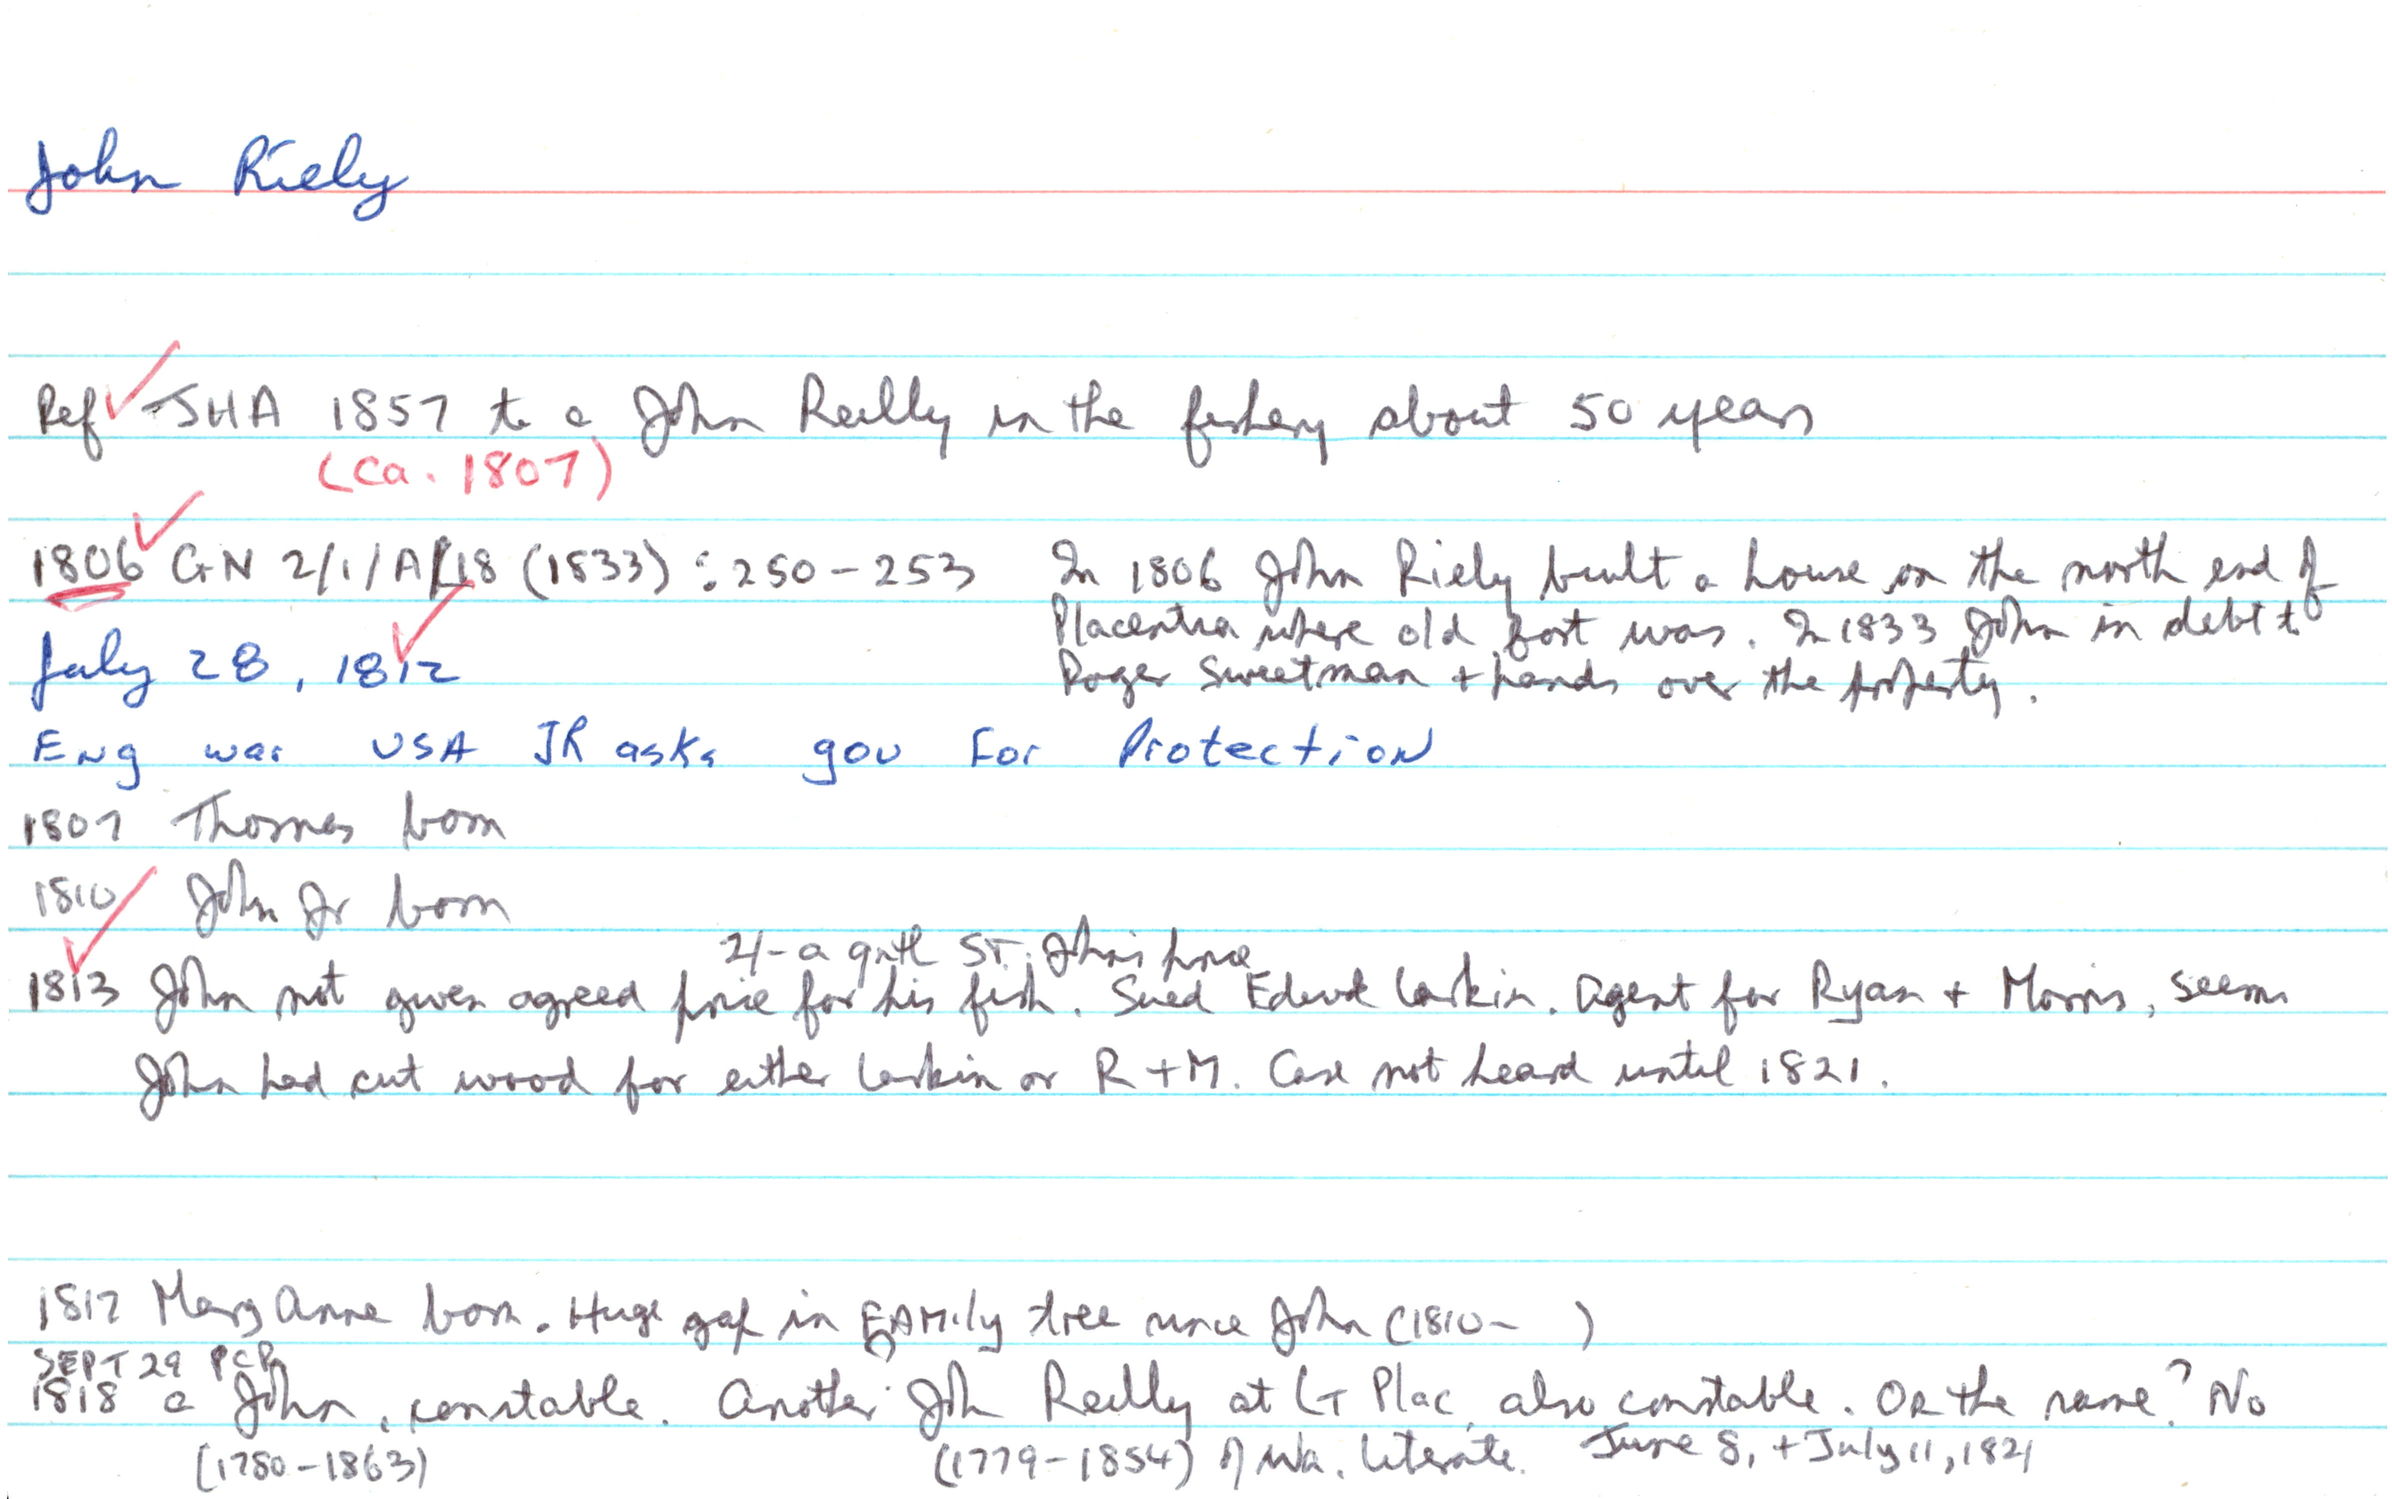 John Riely
Ref JHA 1857 to a John Reilly in the fishery about 50 years
(ca. 1807)
1806 GN 2/1/A/18 (1833) : 250-253 In 1806 John Riely built a house on the north end of
Placentia where old fort was. In 1833 John in debt to
Roger Sweetman + hands over the property.
July 28, 1812
Eng war USA JR asks gov for Protection
1807 Thomas born
1810 John Jr born
2/- a qntl St. John's price
1813 John not given agreed price for his fish. Sued Edward Larkin. Agent for Ryan + Morris, seems
John had cut wood for either Larkin or R + M. Case not heard until 1821.
1817 Mary Anne born. Huge gap in FAMily tree since John (1810- )
SEPT 29 PCP
1818 a John, constable. Another John Reilly at Lt Plac, also constable. OR the same? No
(1780-1863) (1779-1854) literate. June 8, + July 11, 1821